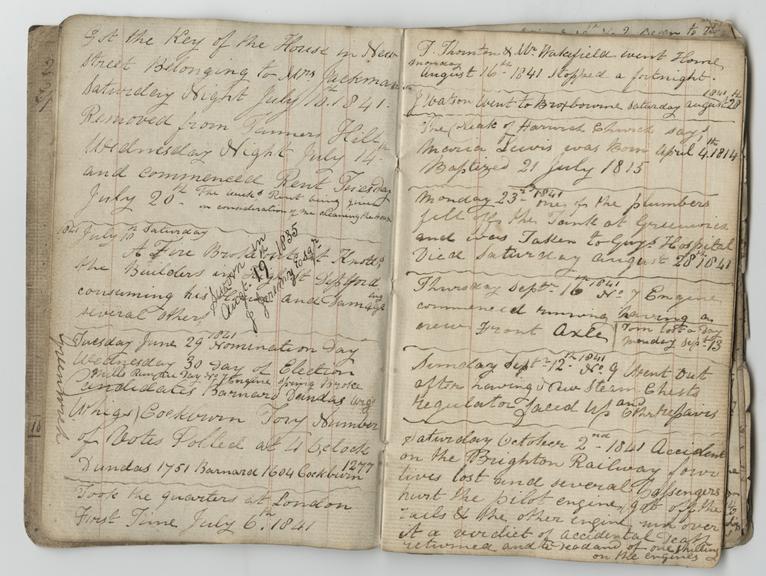 Got the Key of the House in New
Street Belonging to Mrs Jackman
Saturday Night July 10th 1841.
Removed from Tanners Hill
Wednesday Night July 14th
and commenced Rent Tuesday
July 20th The weeks Rent being given
in consideration of me cleaning the
1841 July 10th Saturday
A Fire Broke out at Knotts
the Builders in Deptford
consuming his and Damaging
several others
Sworn in
Augt. 19 1835
Tuesday June 29th 1841 Nomination Day
Wednesday 30 Day of Election
Mills Day No 7 Engine Spring Broke
Candidates Barnard Dundas
Whigs) Cockburn Tory Number
of Votes Polled at 4 oClock
Dundas 1751 Barnard 1604 Cockburn 1277
Took the quarters at London
First Time July 6th 1841
Greenwich
F. Thornton & Mr Wakefield went Home
monday
August 16th 1841 stopped a fortnight.
J Watson Went to Broxbourne Saturday august 28th 1841
The Clerk of Harwich Church says
Maria Lewis was born April 4th 1814
Baptized 21 July 1815
Monday 23rd 1841 one of the plumbers
fell off the Tank at Greenwich
and was Taken to Guys Hospital
Died Saturday august 28th 1841
Thursday Septr 16th 1841 No 7 Engine
commenced running having a
new Front Axle
Tom lost a Day
monday Sept 13
Sunday Sept 12th 1841 No 9 Went Out
after having new Stern Chests
regulator faced Up and other repairs
Saturday October 2nd 1841 Accident
on the Brighton Railway four
lives lost and several Passengers
hurt the pilot engine got off the
rails & the other engine run over
it a verdict of accidental Death
returned and a deodand of one shilling
on the engines